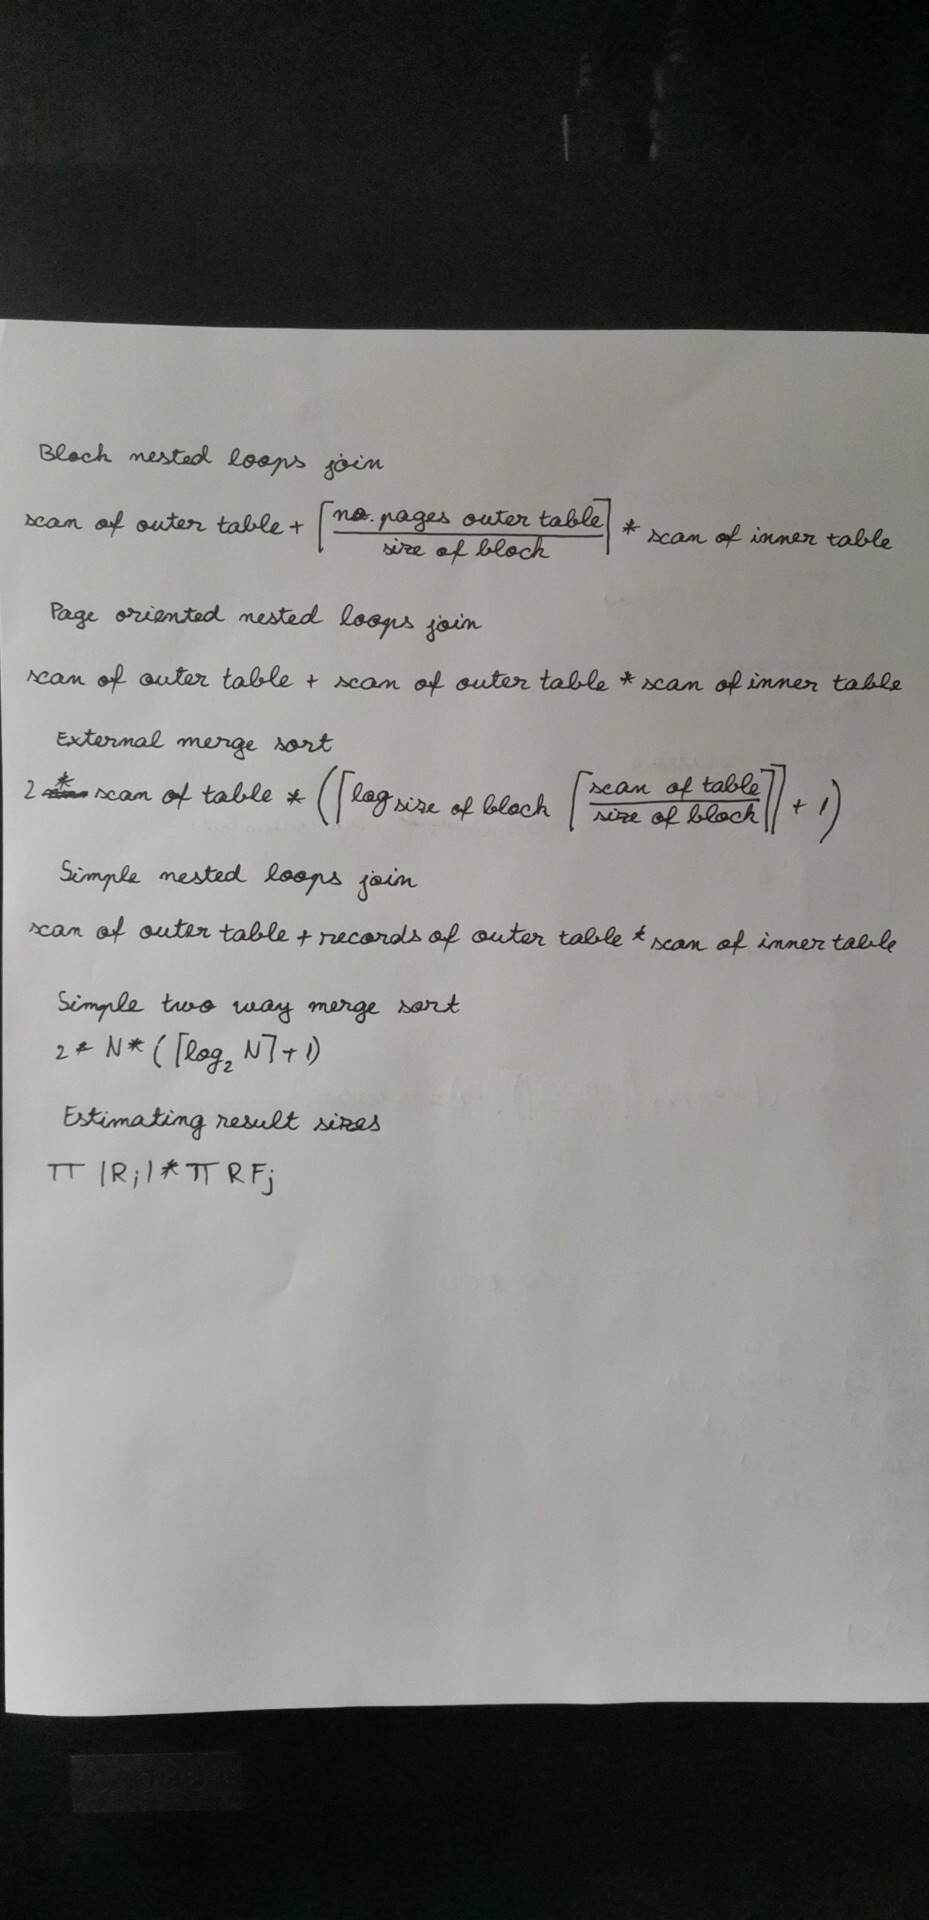 Block nested loops join
scan of outer table + ⌈no. pages outer table / size of block⌉ * scan of inner table
Page oriented nested loops join
scan of outer table + scan of outer table * scan of inner table
External merge sort
2 * scan of table * (⌈log size of block ⌈scan of table / size of block⌉⌉ + 1)
Simple nested loops join
scan of outer table + records of outer table * scan of inner table
Simple two way merge sort
2 * N * (⌈log₂ N⌉ + 1)
Estimating result sizes
π |Rᵢ| * π RFⱼ